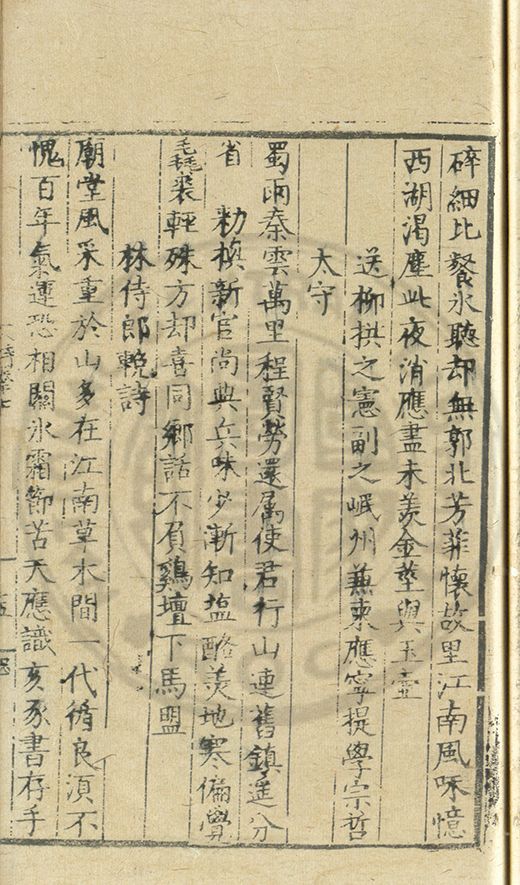 碎細比餐氷聴却無郭北芳菲懷故里江南風味憶
西湖渴塵此夜消應盡未羨金莖與玉壺
送柳拱之憲副之岷州兼柬應寧提學宗哲
太守
蜀雨秦雲萬里程賢勞還属使君行山連舊鎮遥分
省 勑樻新官尚典兵味少漸知塩酪羙地寒偏覺
毳裘輕殊方却喜同鄉話不負鷄壇下馬盟
林侍郎輓詩
廟堂風采重於山多在江南草木間一代循良湏不
愧百年氣運恐相關氷霜節苦天應識亥豕書存手